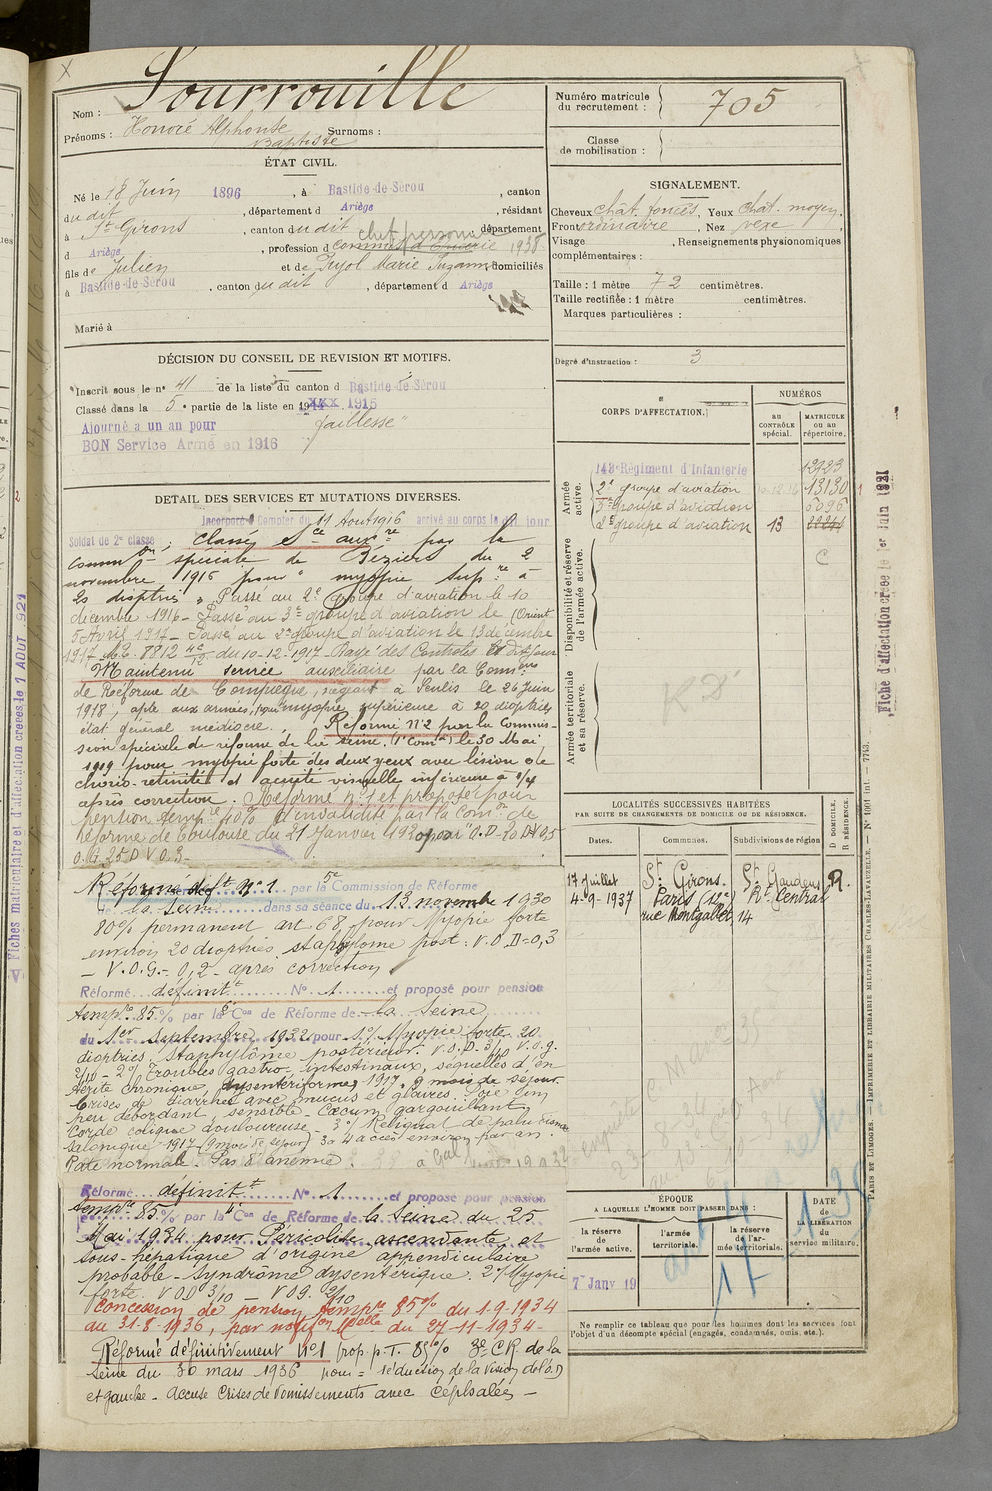 Nom : Sourrouille
Prénoms : Honoré Alphonse Surnoms :
Baptiste
ÉTAT CIVIL.
Né le 18 Juin 1896, à Bastide-de-Sérou, canton
du dit, département d Ariège, résidant
à St Girons, canton du dit, département
chef personnel
d Ariège, profession d commis d'Epicerie 1935
fils de Julien et de Pujol Marie Suzanne, domiciliés
à Bastide-de-Sérou, canton du dit, département d Ariège
Marié à
DÉCISION DU CONSEIL DE REVISION ET MOTIFS.
Inscrit sous le n° 41 de la liste du canton d Bastide-de-Sérou
Classé dans la 5e partie de la liste en 1914 XXX 1915
Ajourné a un an pour faiblesse
BON Service Armé en 1916
DETAIL DES SERVICES ET MUTATIONS DIVERSES.
Incorporé à Compter du 11 Aout 1916 arrivé au corps le dit jour
Soldat de 2e classe : Classé Sce auxre par la
Common spéciale de Béziers du 2
novembre 1916 pour "myopie supre à
20 dioptries". Passé au 2e groupe d'aviation le 10
décembre 1916 - Passé au 3e groupe d'aviation le (Orient
5 Avril 1917 - Passé au 2e groupe d'aviation le 13 décembre
1917 du 10-12-1917 Rayé des Controles le dit jour
Maintenu service auxiliaire par la Comon
de Réforme de Compiègne, siégeant à Senlis le 26 Juin
1918, apte aux armées, pour myopie supérieure à 20 dioptries
état général médiocre. Réformé N° 2 par la Commis-
sion spéciale de réforme de la Seine. (1e Comon) le 30 Mai
1919 pour myopie forte des deux yeux avec lésion de
chorio-retinite et acuité visuelle inférieure à 1/4
après correction. Réformé n° 1 et proposé pour
pension tempre 40% d'invalidité par la Comon de
réforme de Toulouse du 21 Janvier 1920
Réformé déft N° 1 par la 5e Commission de Réforme
de la Seine dans sa séance du 13 novembre 1930
80% permanent art 68 pour myopie forte
environ 20 dioptries staphylome post : V.O.D=0,3
- V.O.G.- 0,2 - après correction
Réformé définitt N° 1 et proposé pour pension
tempre 85% par la 6e Con de Réforme de la Seine
du 1er Septembre 1932 pour 1°/ Myopie forte 20
dioptries. Staphylôme postérieur. V.O.D. 3/10 V.O.g.
2/10 - 2°/ Troubles gastro-intestinaux, séquelles d'en
térite chronique, dysentériforme, 1917. 9 mois de séjour.
Crises de diarrhée avec mucus et glaires. Foie cinq
peu débordant, sensible. Cœcum gargouillant
Corde colique douloureuse - 3°/ Reliquat de paludisme
Salonique 1917 (9 mois de séjour) 3 à 4 accès environ par an.
Rate normale. Pas d'anémie.
Réformé définitt N° 1 et proposé pour pension
tempre 85% par la 4e Con de Réforme de la Seine du 25
Mai 1934 pour Péricolite ascendante et
sous-hépatique d'origine appendiculaire
probable - Syndrôme dysentérique. 2°/ Myopie
forte. V.O.D 3/10 - V.O.G. 2/10
Concession de pension tempre 85% du 1-9-1934
au 31-8-1936, par notifon Mielle du 27-11-1934-
Réformé définitivement N°1 prop. p. T. 85% 3e CR de la
Seine du 30 mars 1936 pour = réduction de la vision doloD
et gauche - Accuse Crises de Vomissements avec Céphalées -
Numéro matricule
du recrutement : 705
Classe
de mobilisation :
SIGNALEMENT.
Cheveux chât. foncés, Yeux Chat. moyen,
Front ordinaire, Nez vexe,
Visage, Renseignements physionomiques
complémentaires :
Taille : 1 mètre 72 centimètres.
Taille rectifiée : 1 mètre centimètres.
Marques particulières :
Degré d'instruction : 3
CORPS D'AFFECTATION.
NUMÉROS
AU CONTRÔLE spécial.
MATRICULE OU AU répertoire.
Armée active.
143e Régiment d'Infanterie 12923
2e groupe d'aviation 13130
3e groupe d'aviation 6096
2e groupe d'aviation 13
C
Disponibilité et réserve de l'armée active.
Armée territoriale et sa réserve.
LOCALITÉS SUCCESSIVES HABITÉES
PAR SUITE DE CHANGEMENTS DE DOMICILE OU DE RÉSIDENCE.
Dates. Communes. Subdivisions de région
D DOMICILE. R RÉSIDENCE.
17 Juillet St Girons. St Gaudens R.
4-9-1937 Paris (12e) Rt Central
rue Montgallet, 14
ÉPOQUE
A LAQUELLE L'HOMME DOIT PASSER DANS :
la réserve de l'armée active.
l'armée territoriale.
la réserve de l'armée territoriale.
DATE de LA LIBÉRATION du service militaire.
7 Janv 19
Ne remplir ce tableau que pour les hommes dont les services font
l'objet d'un décompte spécial (engagés, condamnés, omis, etc.).
PARIS ET LIMOGES. — IMPRIMERIE ET LIBRAIRIE MILITAIRES CHARLES-LAVAUZELLE. — N° 1001 int. — 7743.
Fiche d'affectation créée le 1er Juin 1921
Fiches matriculaire et d'affectation créées le 1 AOUT 921